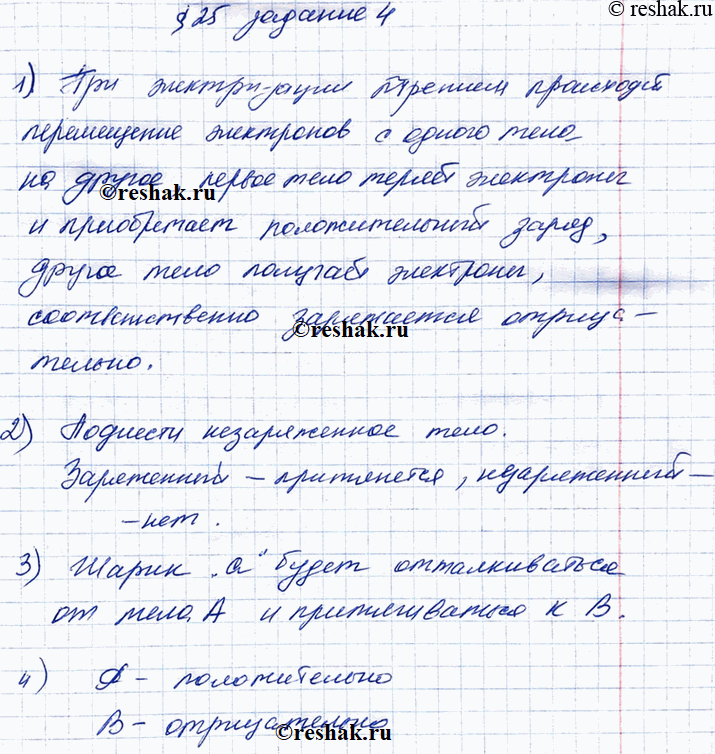 © reshak.ru
§ 25 задание 4
1) При электри-зации трением происходит
перемещение электронов с одного тела
на другое первое тело теряет электроны
©reshak.ru
и приобретает положительный заряд,
другое тело получает электроны,
соответственно заряжается отрица-
©reshak.ru
тельно.
2) Поднести незаряженное тело.
Заряженный – притянется, незаряженный –
– нет.
3) Шарик „a" будет отталкиваться
от тела A и притягиваться к B.
4) A – положительно
B – отрицательно
©reshak.ru